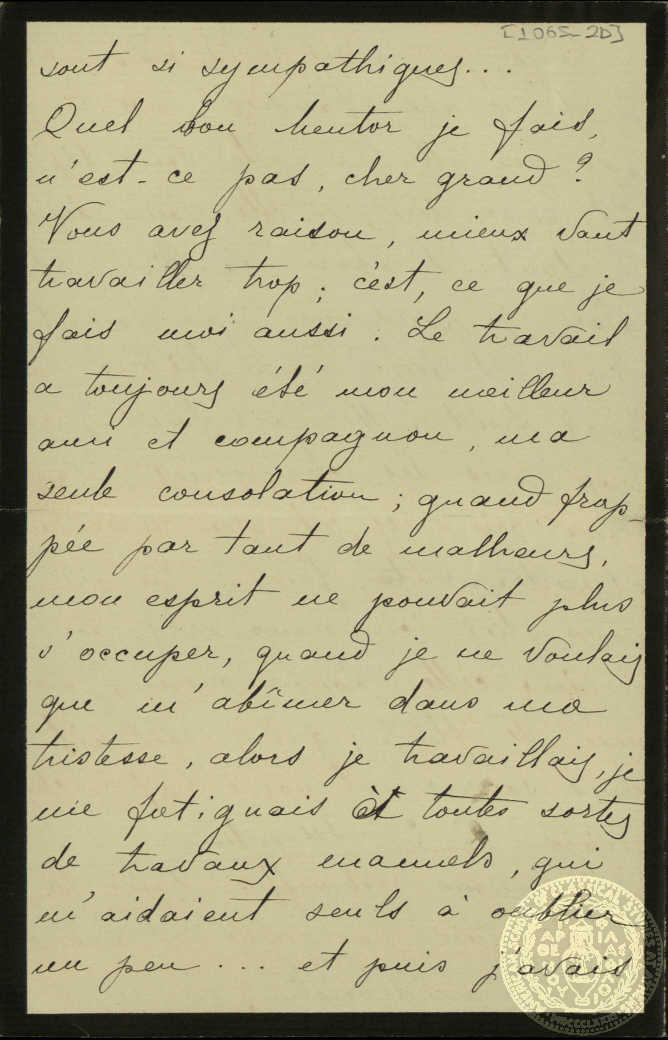 [1065-2D]
sont si sympathiques...
Quel bon mentor je fais,
n'est-ce pas, cher grand?
Vous avez raison, mieux vaut
travailler trop; c'est, ce que je
fais moi aussi. Le travail
a toujours été mon meilleur
ami et compagnon, ma
seule consolation; quand frap-
pée par tant de malheurs,
mon esprit ne pouvait plus
s'occuper, quand je ne voulais
que m'abîmer dans ma
tristesse, alors je travaillais, je
me fatiguais à toutes sortes
de travaux manuels, qui
m'aidaient seuls à oublier
un peu... et puis j'avais